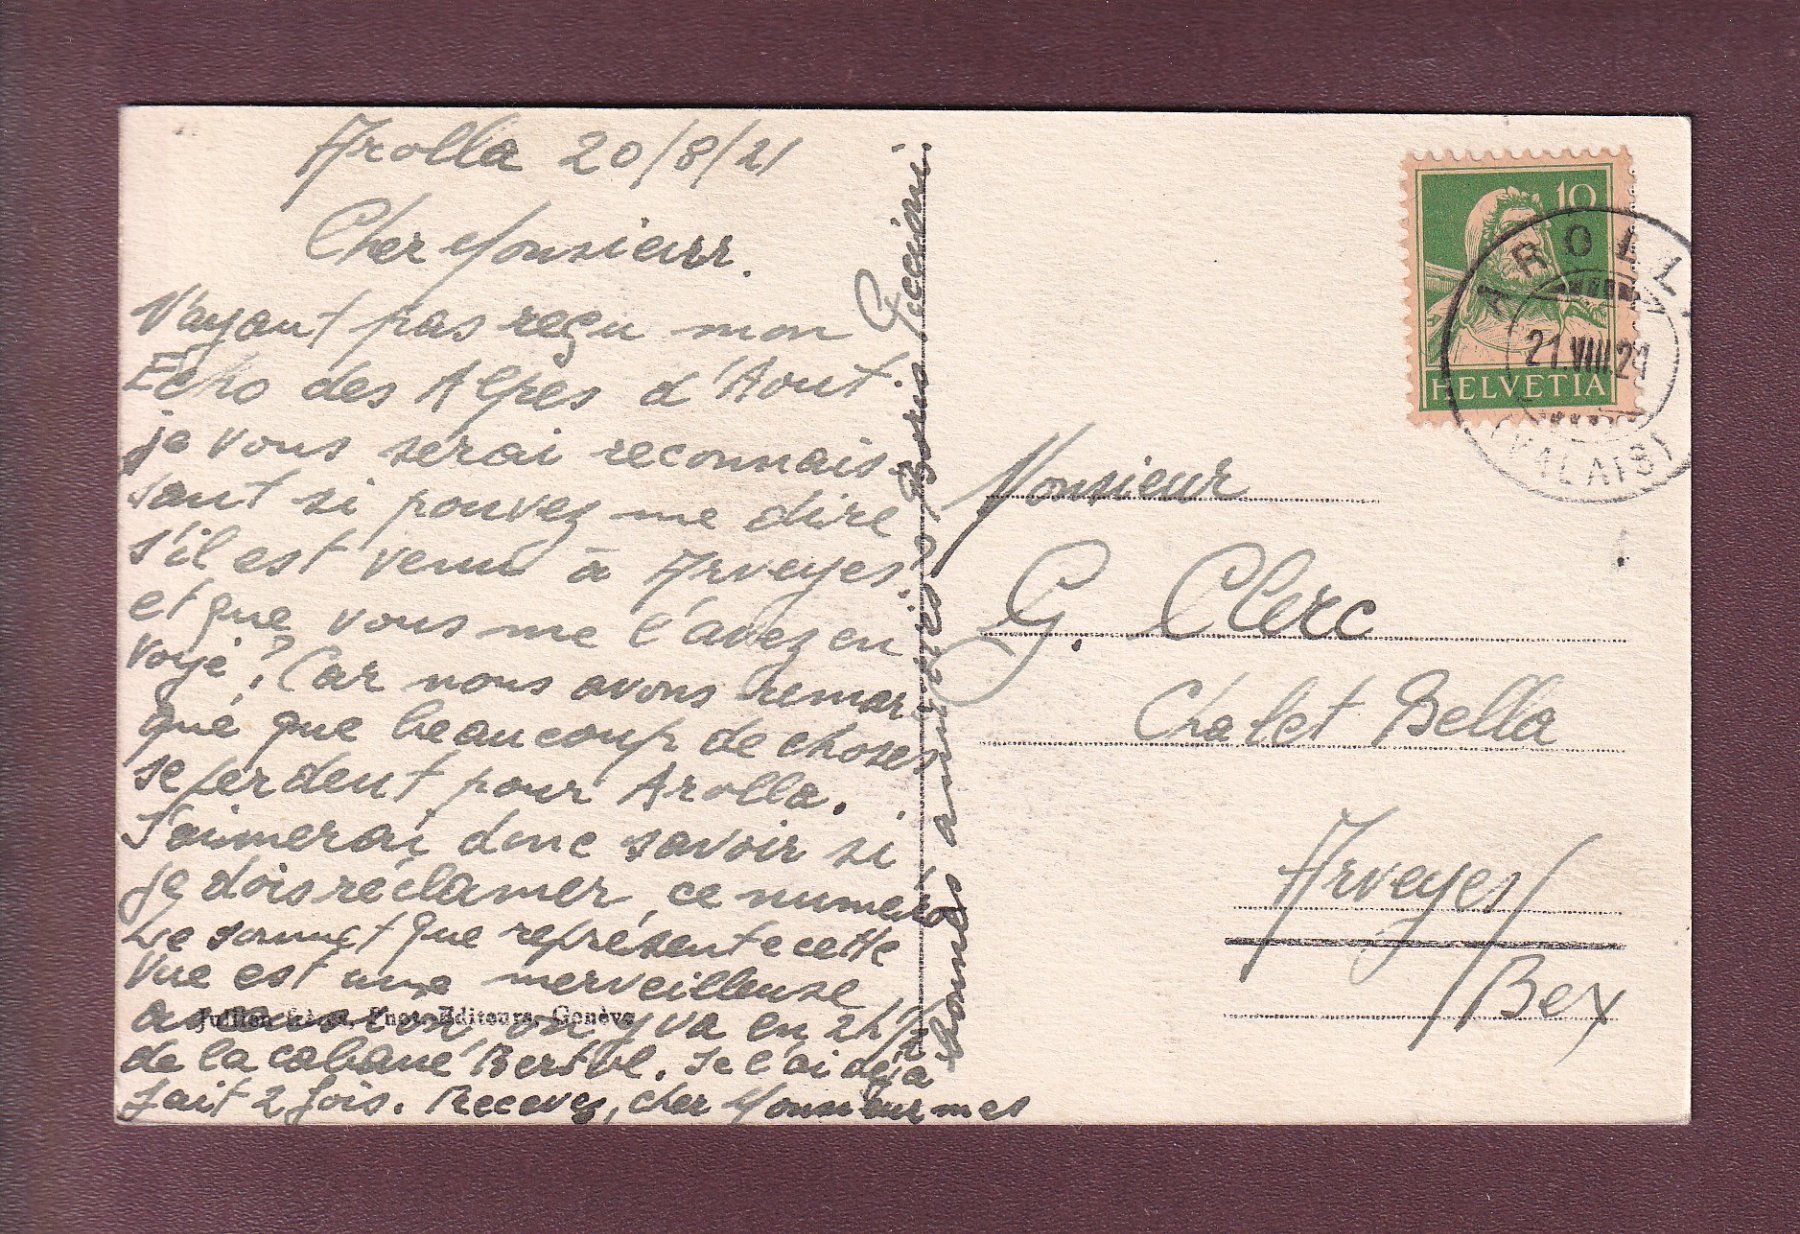 Arolla 20/8/21
Cher Monsieur.
N'ayant pas reçu mon
Echo des Alpes d'Aout.
je vous serai reconnais-
sant si pouvez me dire
s'il est venu à Arveyes.
et que vous me l'avez en
voyé? Car nous avons remar
qué que beaucoup de choses
se perdent pour Arolla.
J'aimerai donc savoir si
je dois réclamer ce numéro
Le sommet que représente cette
vue est une merveilleuse
on y va en 2h½
de la cabane Bertol. Je l'ai déjà
fait 2 fois. Recevez, cher Monsieur mes
bonnes amitiés
Jullien frères, Phot.-Editeurs, Genève
10
HELVETIA
AROLLA
21.VIII.21
(VALAIS)
Monsieur
G. Clerc
Chalet Bella
Arveyes/
Bex